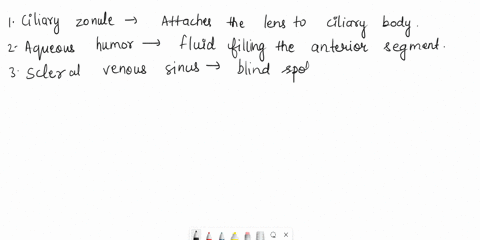 1. Ciliary zonule → Attaches the lens to ciliary body.
2. Aqueous humor → fluid filling the anterior segment.
3. Scleral venous sinus → blind spo